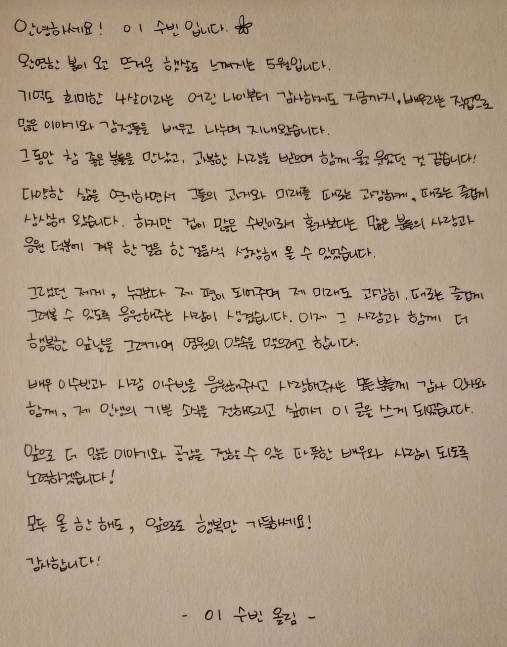 안녕하세요! 이 수빈 입니다.
완연한 봄이 오고 뜨거운 햇살도 느껴지는 5월입니다.
기억도 희미한 4살이라는 어린 나이부터 감사하게도 지금까지, 배우라는 직업으로
많은 이야기와 감정들을 배우고 나누며 지내왔습니다.
그동안 참 좋은 분들을 만났고, 과분한 사랑을 받으며 함께 울고 웃었던 것 같습니다!
다양한 삶을 연기하면서 그들의 과거와 미래를 때로는 과감하게, 때로는 즐겁게
상상해 왔습니다. 하지만 겁이 많은 수빈이라서 혼자보다는 많은 분들의 사랑과
응원 덕분에 겨우 한 걸음 한 걸음씩 성장해 올 수 있었습니다.
그랬던 제게, 누구보다 제 편이 되어주며 제 미래도 과감히, 때로는 즐겁게
그려볼 수 있도록 응원해주는 사람이 생겼습니다. 이제 그 사람과 함께 더
행복한 앞날을 그려가며 영원의 약속을 맺으려고 합니다.
배우 이수빈과 사람 이수빈을 응원해주시고 사랑해주시는 모든 분들께 감사 인사와
함께, 제 인생의 기쁜 소식을 전해드리고 싶어서 이 글을 쓰게 되었습니다.
앞으로 더 많은 이야기와 공감을 전할 수 있는 따뜻한 배우와 사람이 되도록
노력하겠습니다!
모두 올 한 해도, 앞으로도 행복만 가득하세요!
감사합니다!
- 이 수빈 올림 -